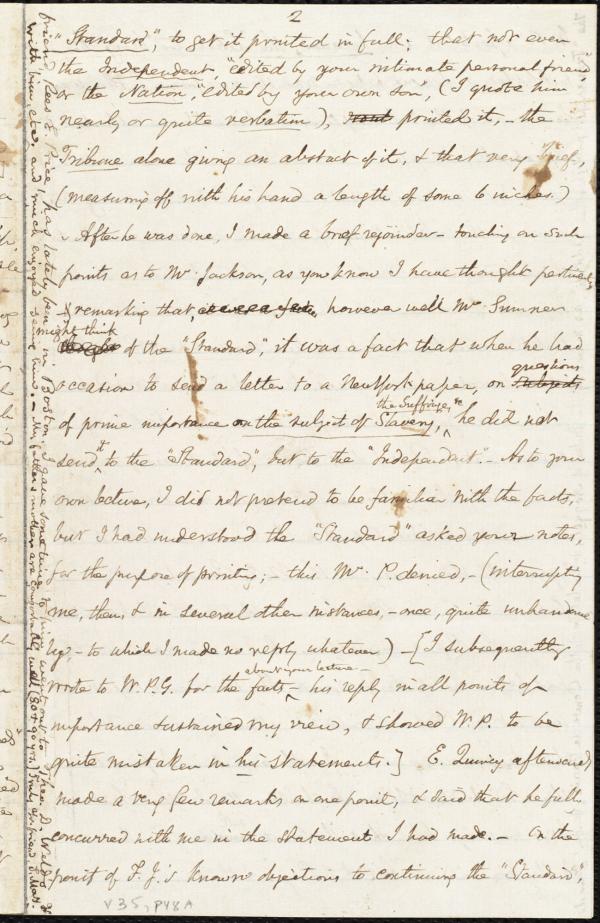 2
"Standard", to get it printed in full; that not even
the Independent, "edited by your intimate personal friend",
or the Nation, "edited by your own son", (I quote him
nearly or quite verbatim), printed it, - the
Tribune alone giving an abstract of it, & that very brief,
(measuring off with his hand a length of some 6 inches.)
After he was done, I made a brief rejoinder - touching on such
points as to Mr. Jackson, as you know I have thought pertinent,
& remarking that, however well Mr Sumner
might think
of the "Standard", it was a fact that when he had
questions
occasion to send a letter to a New York paper, on subjects
the Suffrage &c
of prime importance on the subject of Slavery, he did not
send it to the "Standard", but to the "Independent". - As to your
own lecture, I did not pretend to be familiar with the facts,
but I had understood the "Standard" asked your notes,
for the purpose of printing; - this Mr. P. denied, - (interrupting
me, then, & in several other instances, - once, quite unhandsome
ly, - to which I made no reply whatever) - [I subsequently
about your lecture -
wrote to W.P.G. for the facts - his reply in all points of
importance sustained my view, & showed W.P. to be
quite mistaken in his statements.] E. Quincy afterward
made a very few remarks on one point, & said that he fully
concurred with me in the statement I had made. - On the
point of F.J.'s known objections to continuing the "Standard",
friend Rees E. Price, has lately been in Boston. I gave something to him, & went out to Theo. D. Weld's
with him, &c., and much enjoyed seeing him. - My father & mother are comfortably well (80 & 90 yrs.) Truly, yr friend, S. May.
V 35, P48A